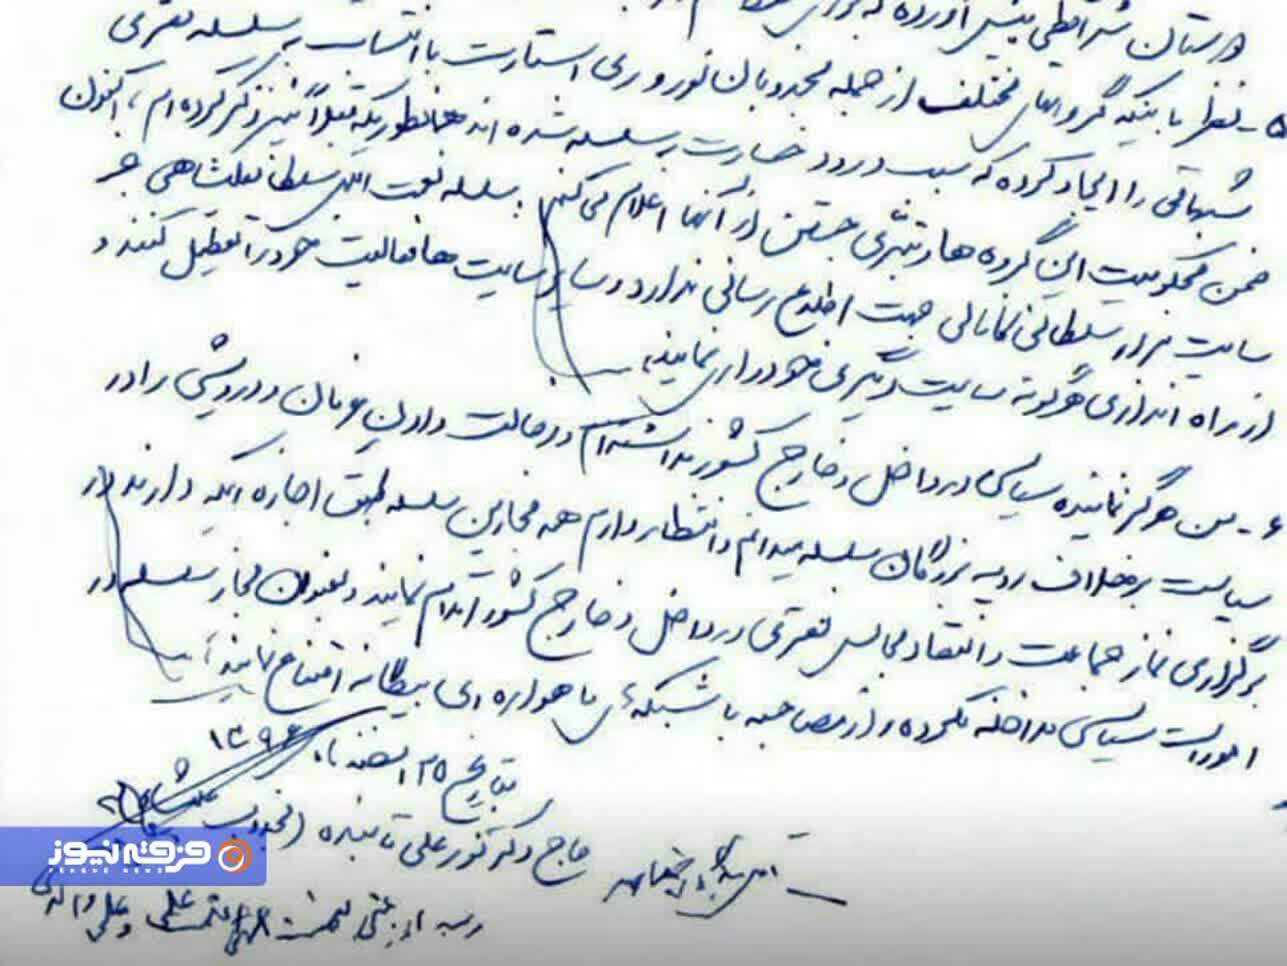 درستان شرایطی پیش آورده که برای
۵ - نظر باینکه گروههای مختلف از جمله مجذوبان نور و ری استارت با انتساب به سلسله فقری
شبهاتی را ایجاد کرده که سبب ورود خسارت به سلسله شده اند همانطوریکه قبلاً نیز ذکر کرده ام، اکنون
ضمن محکومیت این گروه ها و تبری جستن از آنها اعلام می کنم سلسله نعمت اللهی سلطانعلیشاهی جز
سایت مزار سلطانی کانالی جهت اطلاع رسانی ندارد و سایر سایت ها فعالیت خود را تعطیل کنند و
از راه اندازی هرگونه سایت دیگری خودداری نمایند.
۶ - من هرگز نماینده سیاسی در داخل و خارج کشور نداشته ام و دخالت دادن عرفان و درویشی را در
سیاست برخلاف رویه بزرگان سلسله میدانم و انتظار دارم همه مجازین سلسله طبق اجازه ایکه دارند در
برگزاری نماز جماعت و انعقاد مجالس فقری در داخل و خارج کشور اقدام نمایند و بعنوان مجاز سلسله در
امورات سیاسی مداخله نکرده و از مصاحبه با شبکه های ماهواره ای بیگانه امتناع نمایند.
بتاریخ ۲۵ اسفند ۱۳۹۶
حاج دکتر نورعلی تابنده (مجذوب علیشاه)
فرقه نیوز
FERGHE NEWS